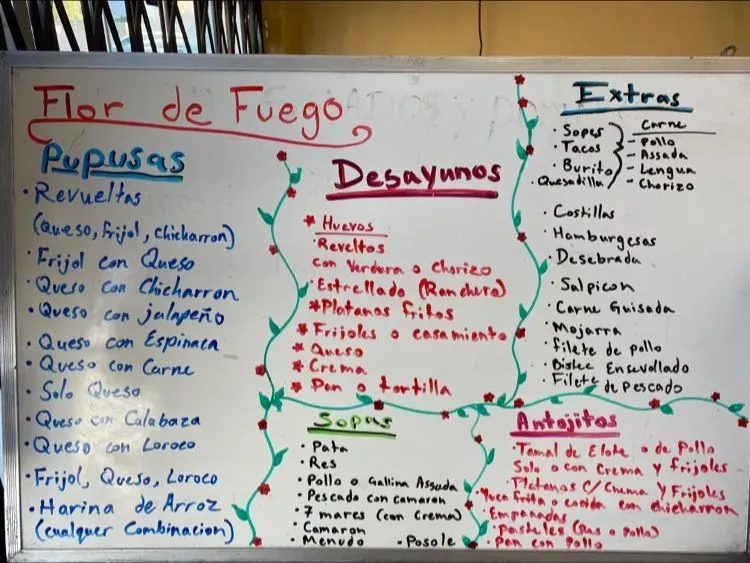 Flor de Fuego
Pupusas
• Revueltas
(Queso, frijol, chicharron)
• Frijol con Queso
• Queso con Chicharron
• Queso con jalapeño
• Queso con Espinaca
• Queso con Carne
• Solo Queso
• Queso con Calabaza
• Queso con Loroco
• Frijol, Queso, Loroco
• Harina de Arroz
(cualquer Combinacion)
Desayunos
* Huevos
• Reveltos
con verdura o chorizo
• Estrellado (Ranchero)
* Platanos fritos
* Frijoles o casamiento
* Queso
* Crema
* Pan o tortilla
Extras
• Sopes
• Tacos
• Burito
• Quesadilla
Carne
- Pollo
- Assada
- Lengua
- Chorizo
• Costillas
• Hamburgesas
• Desebrada
• Salpicon
• Carne Guisada
• Mojarra
• filete de pollo
• Bistec Encevollado
• Filete de pescado
Sopas
• Pata
• Res
• Pollo o Gallina Assada
• Pescado con camaron
• 7 mares (con Crema)
• Camaron
• Menudo • Posole
Antojitos
• Tamal de Elote o de Pollo
Solo o con Crema y frijoles
• Platanos c/ Crema y Frijoles
• Yuca frita o cosida con chicharron
• Empanadas
• Pasteles (Res o pollo)
• Pan con Pollo